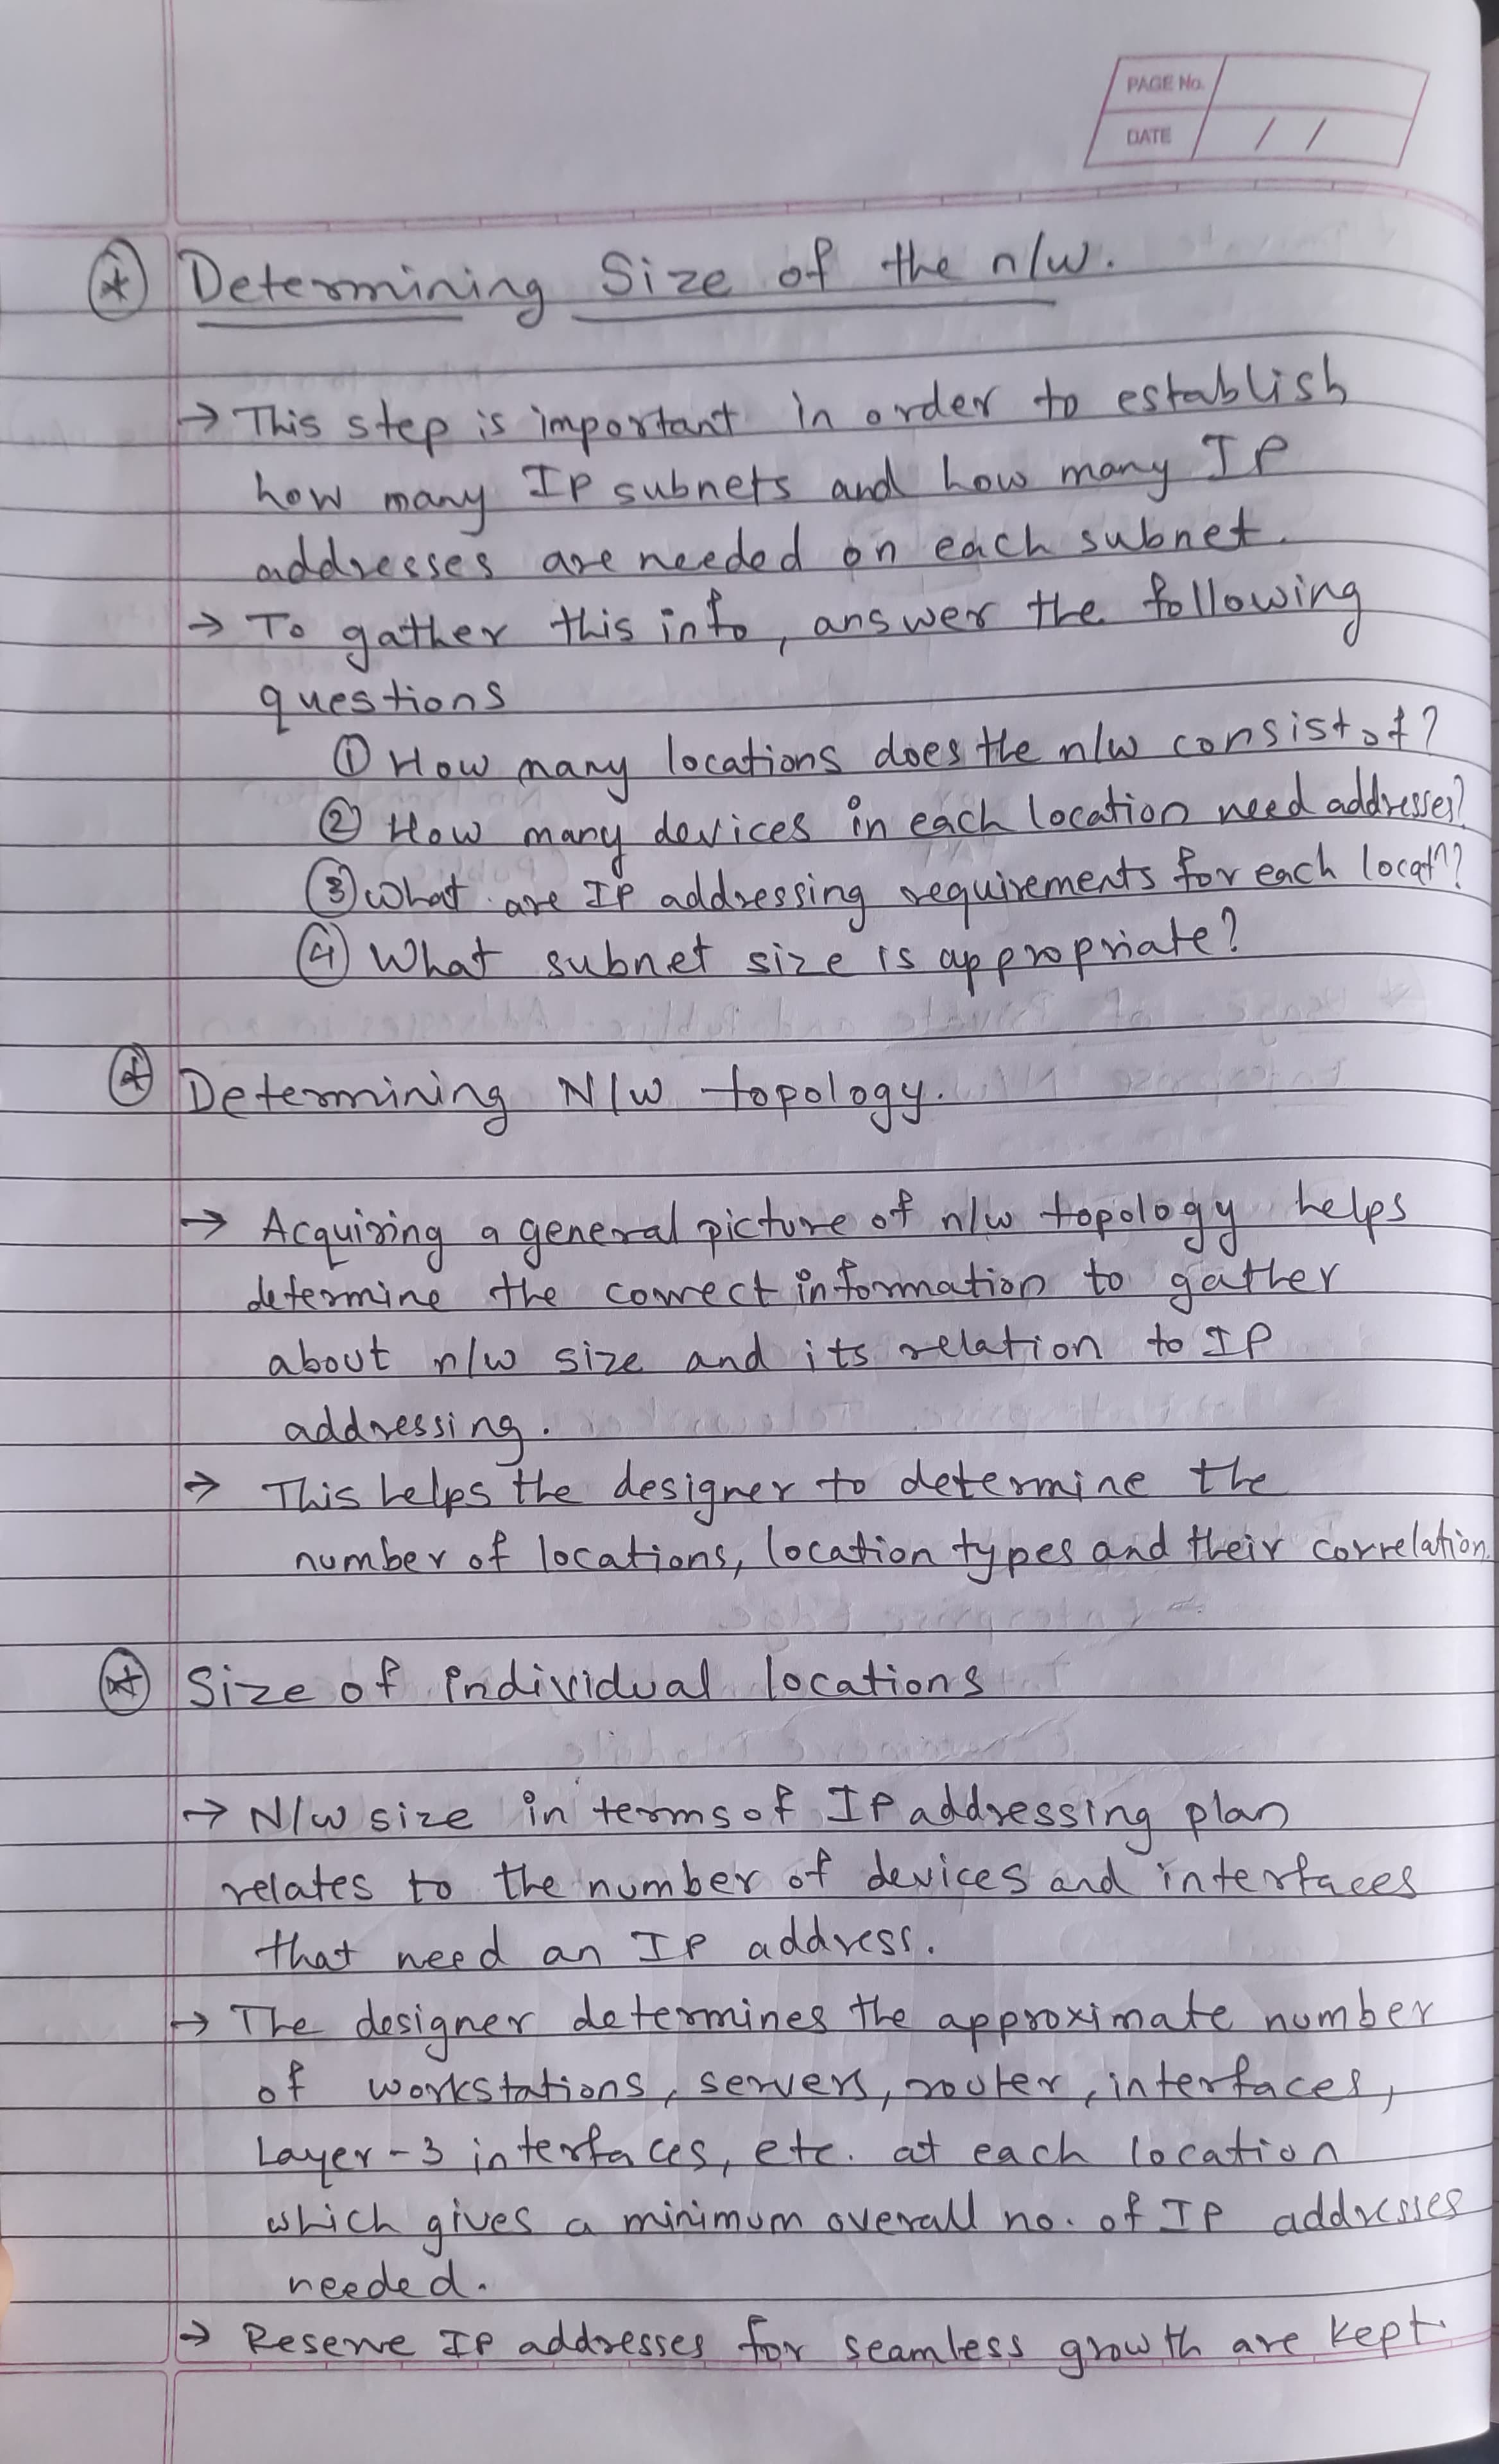 PAGE No.
DATE / /
Determining Size of the n/w.
→ This step is important in order to establish
how many IP subnets and how many IP
addresses are needed on each subnet.
→ To gather this info, answer the following
questions
① How many locations does the n/w consist of?
② How many devices in each location need addresses?
③ What are IP addressing requirements for each locatⁿ?
④ What subnet size is appropriate?
Determining N/w topology.
→ Acquiring a general picture of n/w topology helps
determine the correct information to gather
about n/w size and its relation to IP
addressing.
→ This helps the designer to determine the
number of locations, location types and their correlation.
Size of individual locations
→ N/w size in terms of IP addressing plan
relates to the number of devices and interfaces
that need an IP address.
→ The designer determines the approximate number
of workstations, servers, router, interfaces,
Layer-3 interfaces, etc. at each location
which gives a minimum overall no. of IP addresses
needed.
→ Reserve IP addresses for seamless growth are kept.